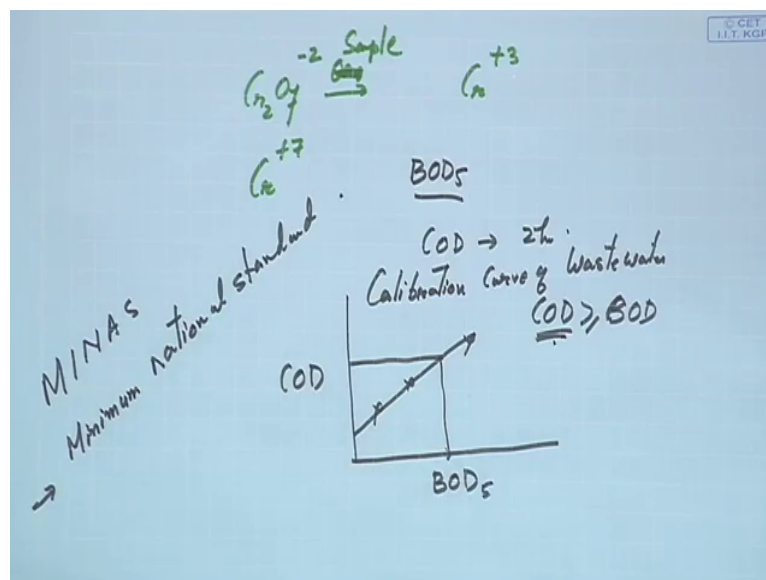 © CET
I.I.T. KGP
Cr2O7 -2 Sample → Cr +3
Cr +7
BOD5
COD → 2h.
Calibration Curve of Wastewater
COD ≥ BOD
MINAS
Minimum national standard
→
COD
BOD5